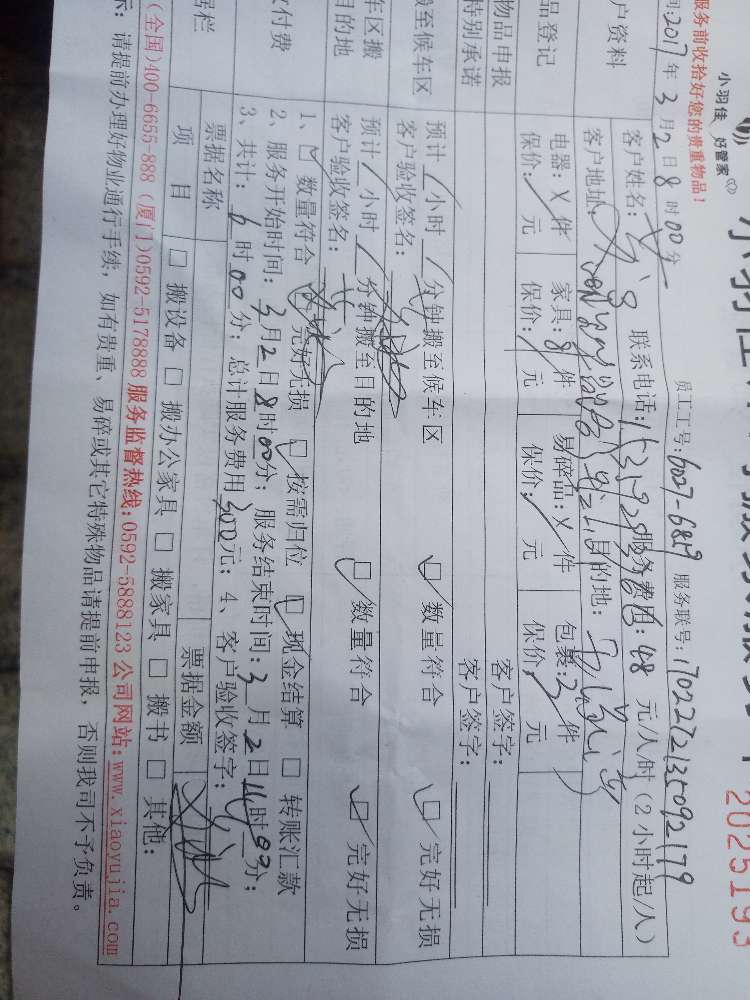 小羽佳 好管家
2025193
服务前收拾好您的贵重物品！
员工工号：6027-6819 服务联号：1702272135092179
2017年3月2日8时00分
户资料 客户姓名： 联系电话： 服务费用：48元/人时（2小时起/人）
客户地址： 目的地：
品登记 电器：X件 家具：8件 易碎品：X件 包裹：2件
保价：/元 保价：/元 保价：/元 保价：/元
物品申报 客户签字：
特别承诺 客户签字：
搬至候车区 预计/小时/分钟搬至候车区 ☑数量符合 ☑完好无损
客户验收签名：
车区搬目的地 预计/小时/分钟搬至目的地 ☑数量符合 ☑完好无损
客户验收签名：
付费 1、☑数量符合 完好无损 ☑按需归位 ☑现金结算 □转账汇款
2、服务开始时间：3月2日8时00分；服务结束时间：3月2日14时00分；
3、共计：6时00分；总计服务费用300元；4、客户验收签字：
据栏 票据名称 票据金额
项目 □搬设备 □搬办公家具 □搬家具 □搬书 □其他：
(全国)400-6655-888 (厦门)0592-5178888 服务监督热线：0592-5888123 公司网站：www.xiaoyujia.com
示：请提前办理好物业通行手续，如有贵重、易碎或其它特殊物品请提前申报，否则我司不予负责。